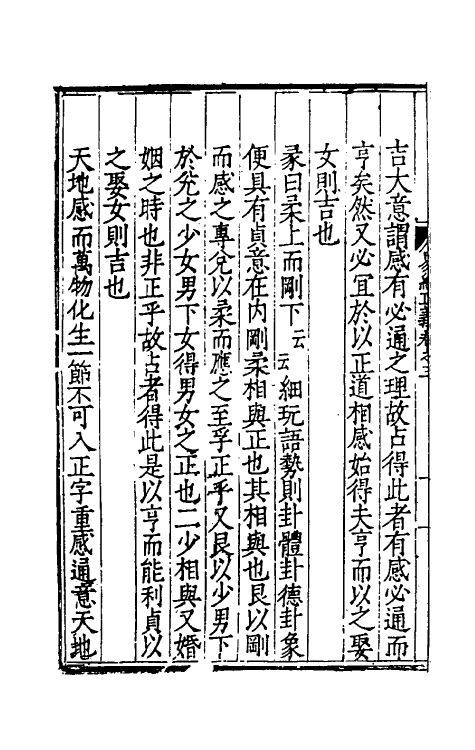 吉大意謂感有必通之理故占得此者有感必通而
亨矣然又必宜於以正道相感始得夫亨而以之娶
女則吉也
彖曰柔上而剛下云云細玩語勢則卦體卦德卦象
便具有貞意在内剛柔相與正也其相與也艮以剛
而感之專兌以柔而應之至孚正乎又艮以少男下
於兌之少女男下女得男女之正也二少相與又婚
姻之時也非正乎故占者得此是以亨而能利貞以
之娶女則吉也
天地感而萬物化生一節不可入正字重感通意天地